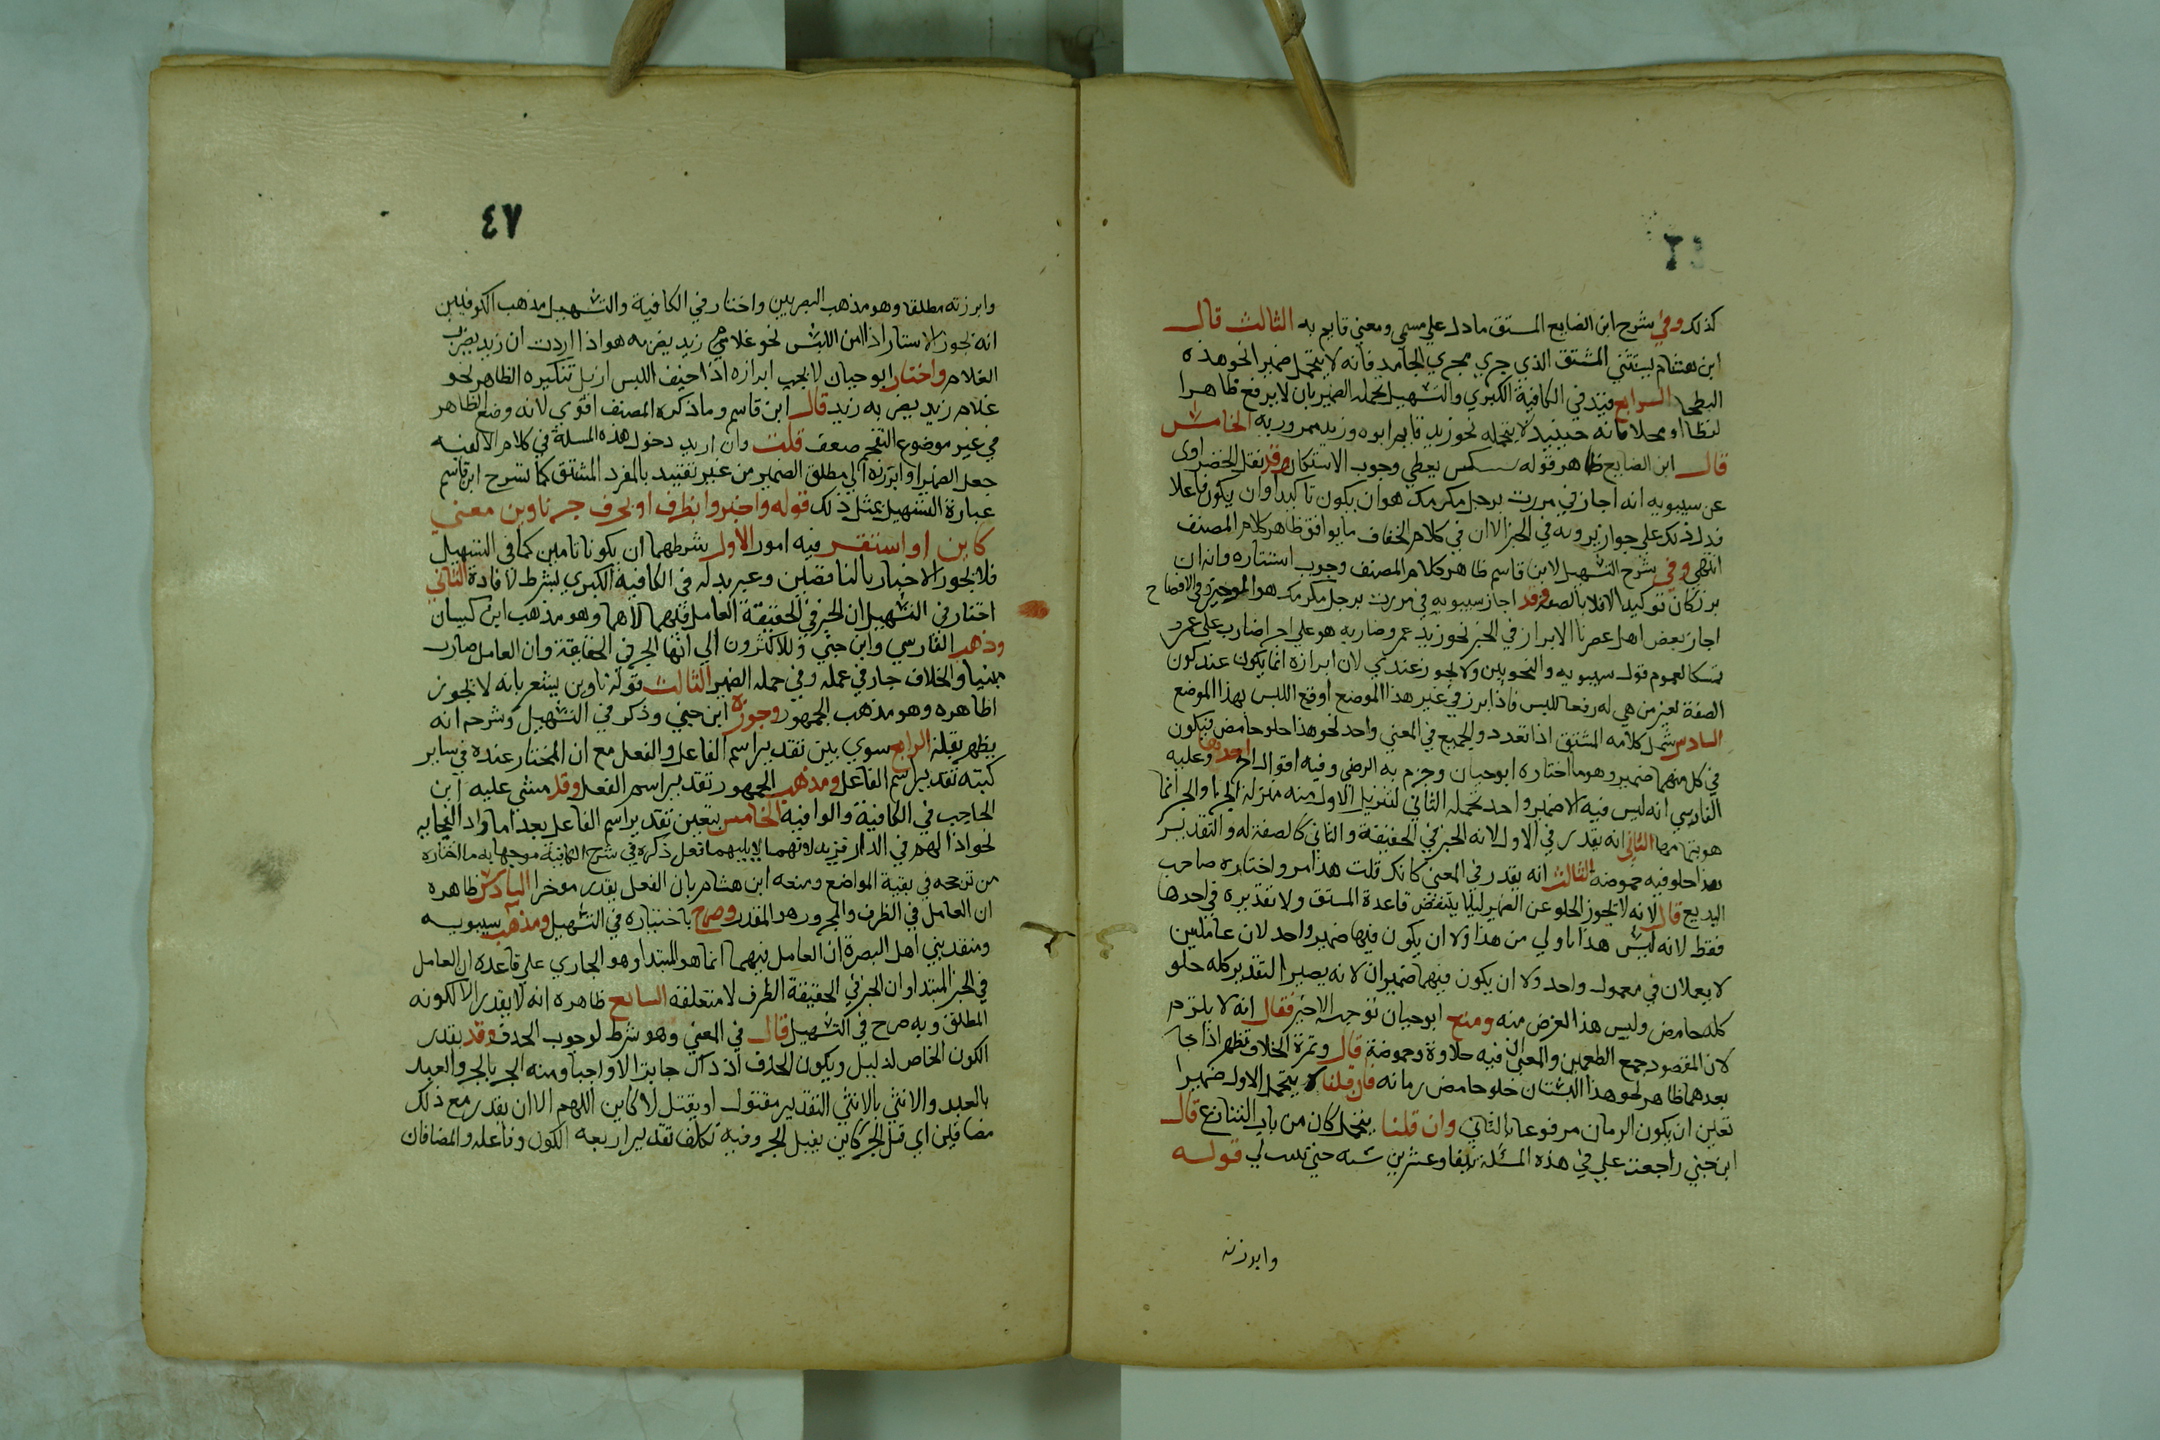 كذلك وفي شرح ابن الضايع المشتق ما دل علي مسمي ومعني قايم به الثالث قال
ابن هشام يستثني المشتق الذي جري مجري الجامد فانه لا يتحمل ضميرا نحو هذه
البطحا الرابع قيد في الكافية الكبري والتسهيل تحمله الضمير بان لا يرفع ظاهرا
لفظا او محلا فانه حينيذ لا يتحمله نحو زيد قايم ابوه وزيد ممرور به الخامس
قال ابن الضايع ظاهر قوله يعطي وجوب الاستكان وقد نقل الخضراوي
عن سيبويه انه اجاز في مررت برجل مكرمك هو ان يكون تاكيدا وان يكون فاعلا
فدل ذلك علي جواز بروزه في الخبر الا ان في كلام الخفاف ما يوافق ظاهر كلام المصنف
انتهي وفي شرح التسهيل لابن قاسم ظاهر كلام المصنف وجوب استتاره وانه ان
برز كان توكيدا لا فاعلا بالصفة وقد اجاز سيبويه في مررت برجل مكرمك هو الوجهين وفي الافصاح
اجاز بعض اهل عصرنا الابراز في الخبر نحو زيد عمرو ضاربه هو علي اجرا ضارب علي عمرو
تمسكا لعموم قول سيبويه والنحويين ولا يجوز عندي لان ابرازه انما يكون عند كون
الصفة لغير من هي له رفعا للبس فاذا برز في غير هذا الموضع اوقع اللبس بهذا الموضع
السادس شمل كلامه المشتق اذا تعدد والجميع في المعني واحد نحو هذا حلو حامض فيكون
في كل منهما ضمير وهو ما اختاره ابو حيان وجزم به الرضي وفيه اقوال اخر احدها وعليه
الفارسي انه ليس فيه الا ضمير واحد تحمله الثاني لتنزيل الاول منه منزلة الجزا والخبر انما
هو بتمامها الثاني انه يقدر في الاول لانه الخبر في الحقيقة والثاني كالصفة له والتقدير
هذا حلو فيه حموضة الثالث انه يقدر في المعني كانك قلت هذا مر واختاره صاحب
البديع قال لانه لا يجوز الخلو عن الضمير ليلا ينتقض قاعدة المشتق ولا تقديره في احدهما
فقط لانه ليس هذا باولي من هذا ولا ان يكون فيهما ضمير واحد لان عاملين
لا يعملان في معمول واحد ولا ان يكون فيهما ضميران لانه يصير التقدير كله حلو
كله حامض وليس هذا الغرض منه ومنع ابو حيان توجيه الاخير فقال انه لا يلتزم
لان المقصود جمع الطعمين والمعني ان فيه حلاوة وحموضة قال وثمرة الخلاف تظهر اذا جا
بعدهما ظاهر نحو هذا البستان حلو حامض رمانه فان قلنا لا يتحمل الاول ضميرا
تعين ان يكون الرمان مرفوعا بالثاني وان قلنا يتحمل كان من باب التنازع قال
ابن جني راجعت علي في هذه المسئلة نيفا وعشرين سنة حتي تبين لي قوله
وابرزنه
٤٧
وابرزنه مطلقا وهو مذهب البصريين واختار في الكافية والتسهيل مذهب الكوفيين
انه يجوز الاستتار اذا امن اللبس نحو غلامي زيد يضربه هو اذا اردت ان زيد يضرب
الغلام واختار ابو حيان لا يجب ابرازه اذا خيف اللبس ازيل بتكريره الظاهر نحو
غلام زيد يضربه زيد قال ابن قاسم وما ذكره المصنف اقوي لانه وضع الظاهر
في غير موضوع التفخيم ضعف قلت وان اريد دخول هذه المسلة في كلام الالفية
جعل الضمير في وابرزنه الي مطلق الضمير من غير تقييد بالمفرد المشتق كما شرح ابن قاسم
عبارة التسهيل بمثل ذلك قوله واخبروا بظرف او بحرف جر ناوين معني
كاين او استقر فيه امور الاول شرطهما ان يكونا تامين كما في التسهيل
فلا يجوز الاخبار بالناقصين وعبر بدله في الكافية الكبري بشرط الافادة الثاني
اختار في التسهيل ان الخبر في الحقيقة العامل فيهما لاهما وهو مذهب ابن كيسان
وذهب الفارسي وابن جني وللاكثرون الي انها الخبر في الحقيقة وان العامل صار
منسيا والخلاف جار في عمله وفي حمله الضمير الثالث قوله ناوين يشعر بانه لا يجوز
اظاهره وهو مذهب الجمهور وجوزه ابن جني وذكر في التسهيل وشرحه انه
يظهر بقلة الرابع سوي بين تقدير اسم الفاعل والفعل مع ان المختار عنده في ساير
كتبه تقدير اسم الفاعل ومذهب الجمهور تقدير اسم الفعل وقد مشي عليه ابن
الحاجب في الكافية والوافية الخامس يتعين تقدير اسم الفاعل بعد اما واذا الفجايه
نحو اذا لهم في الدار فزيد لانهما لا يليهما فعل ذكره في شرح الكافية موجها به ما اختاره
من ترجحه في بقية المواضع ومنعه ابن هشام بان الفعل يقدر موخرا السادس ظاهره
ان العامل في الظرف والمجرور هو المقدر وصرح باختياره في التسهيل ومذهب سيبويه
ومتقدمي اهل البصرة ان العامل فيهما انما هو المبتدا وهو الجاري علي قاعدة ان العامل
في الخبر المبتدا وان الخبر في الحقيقة الظرف لا متعلقه السابع ظاهره انه لا يقدر الا الكونه
المطلق وبه صرح في التسهيل قال في المغني وهو شرط لوجوب الحذف وقد يقدر
الكون الخاص لدليل ويكون الحذف اذ ذاك جايزا لا واجبا ومنه الحر بالحر والعبد
بالعبد والانثي بالانثي التقدير مقتول او يقتل لا كاين اللهم الا ان يقدر مع ذلك
مضافين اي قتل الحر كاين بقتل الحر وفيه تكلف تقدير اربعه الكون وفاعله والمضافان